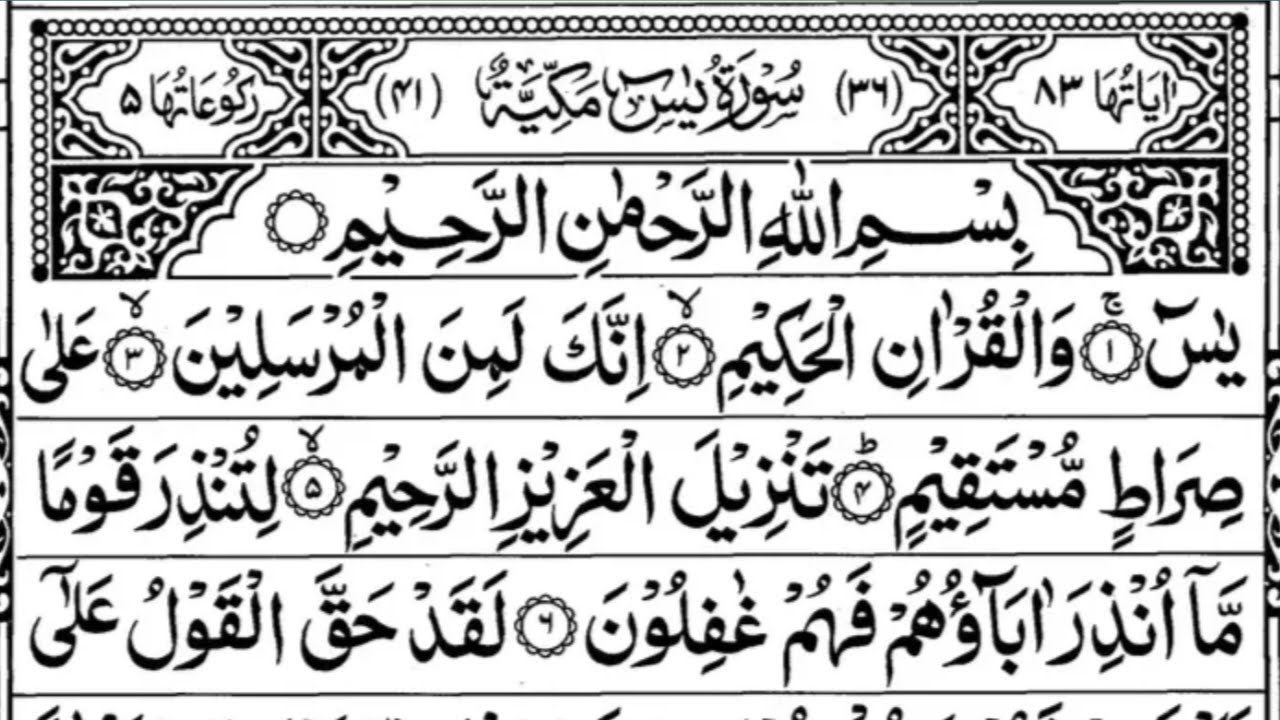 اٰيَاتُهَا ٨٣ (٣٦) سُوْرَةُ يٰسٓ مَكِّيَّةٌ (٤١) رُكُوْعَاتُهَا ٥
بِسْمِ اللّٰهِ الرَّحْمٰنِ الرَّحِيْمِ
يٰسٓ ۚ﴿١﴾ وَالْقُرْاٰنِ الْحَكِيْمِ ۙ﴿٢﴾ اِنَّكَ لَمِنَ الْمُرْسَلِيْنَ ۙ﴿٣﴾ عَلٰى
صِرَاطٍ مُّسْتَقِيْمٍ ؕ﴿۴﴾ تَنْزِيْلَ الْعَزِيْزِ الرَّحِيْمِ ۙ﴿۵﴾ لِتُنْذِرَ قَوْمًا
مَّاۤ اُنْذِرَ اٰبَآؤُهُمْ فَهُمْ غٰفِلُوْنَ ﴿۶﴾ لَقَدْ حَقَّ الْقَوْلُ عَلٰٓى